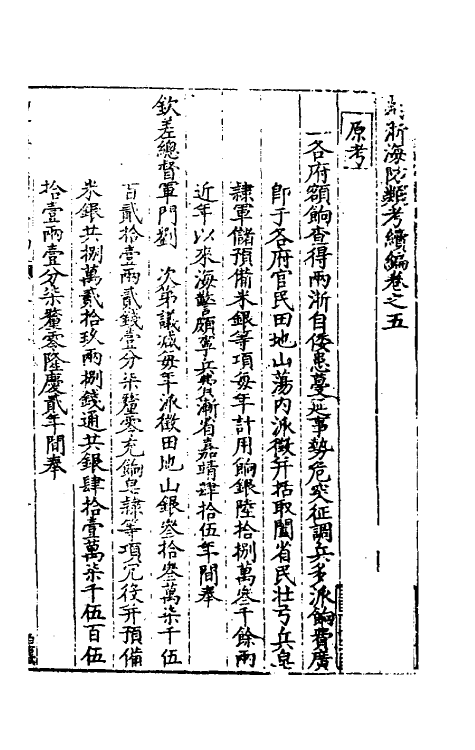 兩浙海防類考續編卷之五
原考
一各府額餉查得兩浙自倭患蔓延事勢危突征調兵多派餉費廣
即于各府官民田地山蕩内派徵并括取闔省民壯弓兵皂
隸軍儲預備米銀等項每年計用餉銀陸拾捌萬叁千餘兩
近年以來海警頗寧兵費漸省嘉靖肆拾伍年間奉
欽差總督軍門劉 次第議減每年派徵田地山銀叁拾叁萬柒千伍
百貳拾壹兩貳錢壹分柒釐零充餉皂隸等項冗役并預備
米銀共捌萬貳拾玖兩捌錢通共銀肆拾壹萬柒千伍百伍
拾壹兩壹分柒釐零隆慶貳年間奉